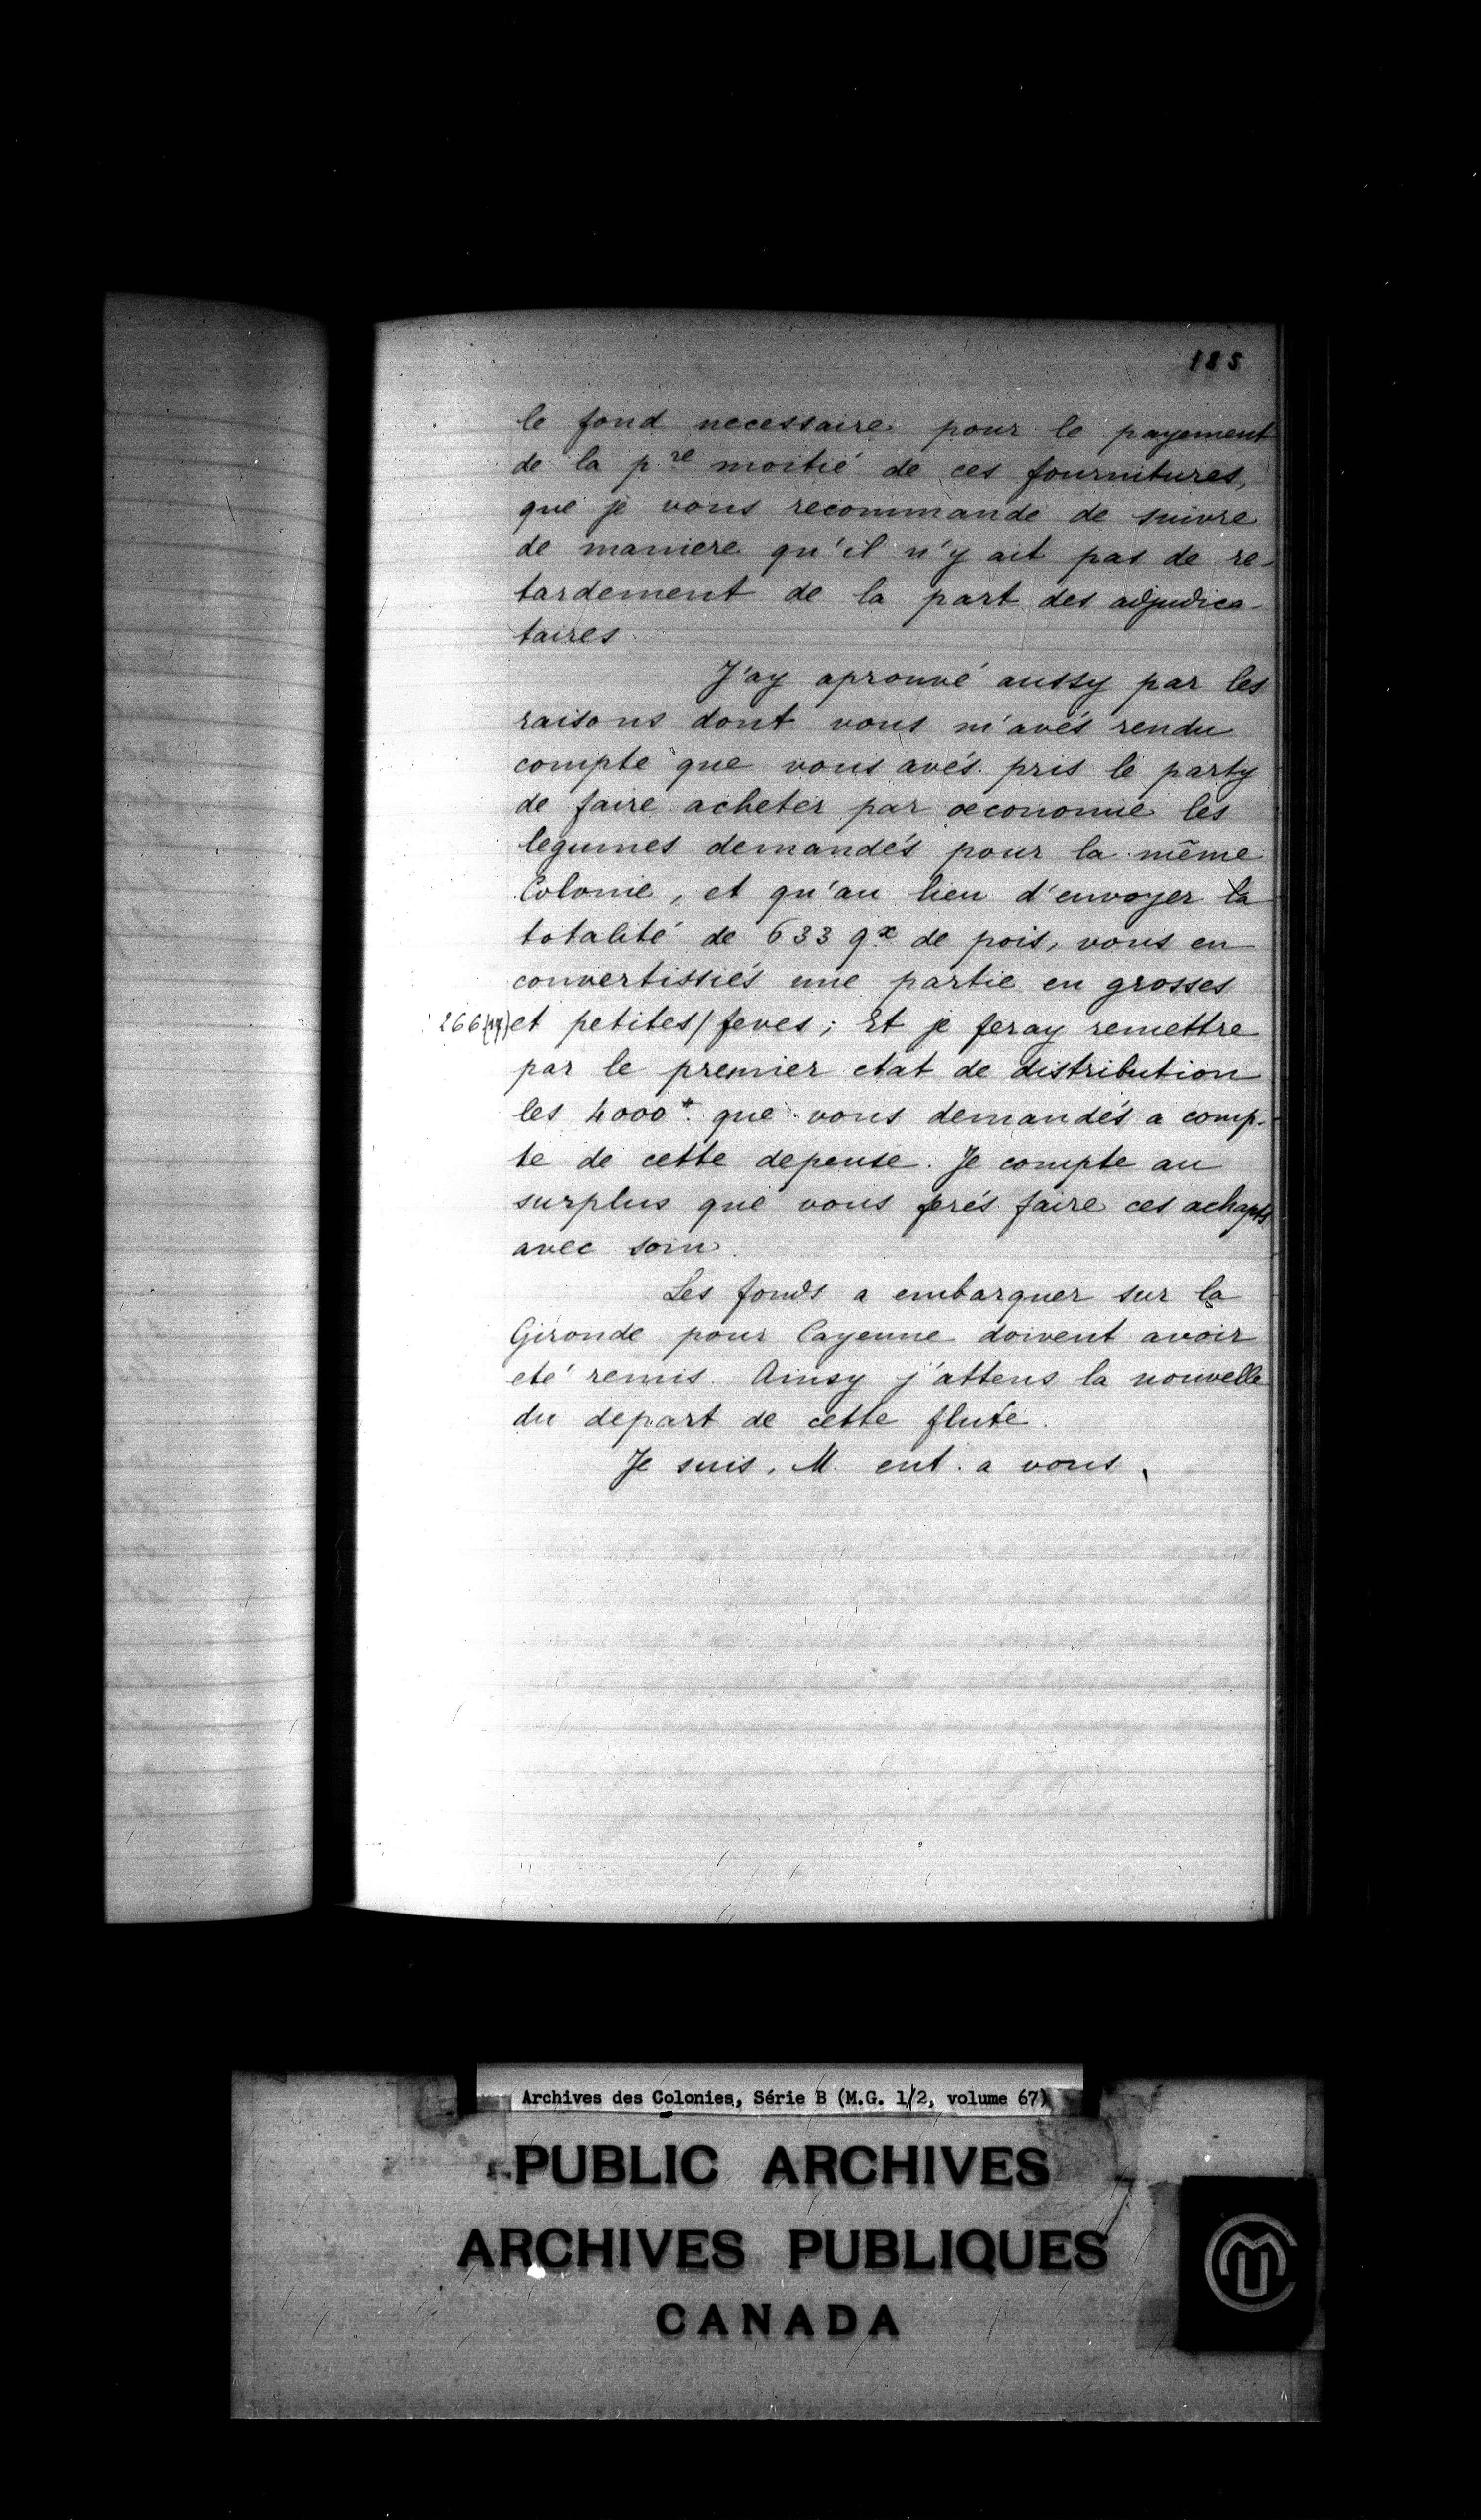 185
le fond necessaire pour le payement
de la p.re moitié de ces fournitures,
que je vous recommande de suivre
de maniere qu'il n'y ait pas de re-
tardement de la part des adjudica-
taires
J'ay aprouvé aussy par les
raisons dont vous m'avés rendu
compte que vous avés pris le party
de faire acheter par œconomie les
legumes demandés pour la même
Colonie, et qu'au lieu d'envoyer la
totalité de 633 qx de pois, vous en
convertissiés une partie en grosses
266 et petites/feves; Et je feray remettre
par le premier etat de distribution
les 4000# que vous demandés a comp-
te de cette depense. Je compte au
surplus que vous ferés faire ces achapts
avec soin.
Les fonds a embarquer sur la
Gironde pour Cayenne doivent avoir
eté remis. Ainsy j'attens la nouvelle
du depart de cette flute.
Je suis, M. ent. a vous,
Archives des Colonies, Série B (M.G. 1/2, volume 67)
PUBLIC ARCHIVES
ARCHIVES PUBLIQUES
CANADA